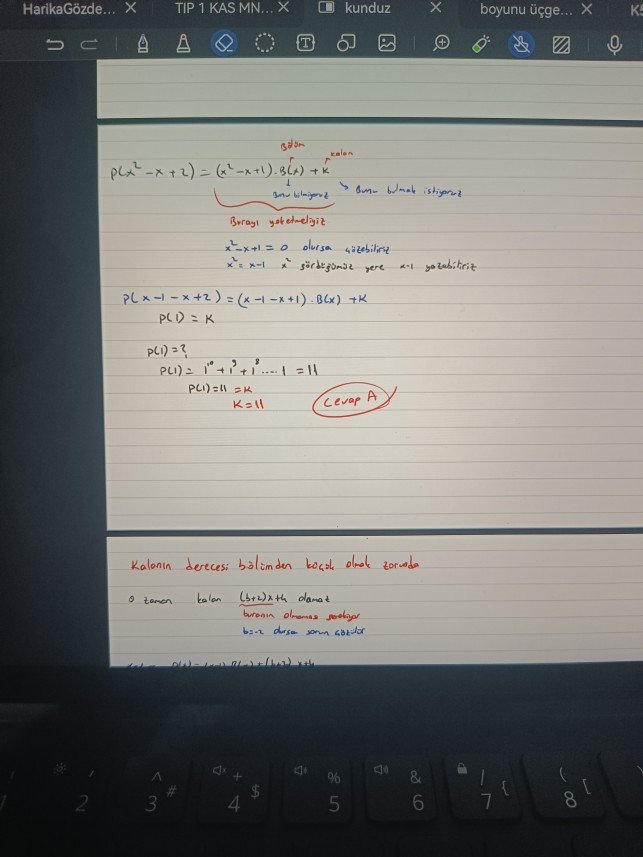 HarikaGözde... X TIP 1 KAS MN... X kunduz X boyunu üçge... X
Bölüm
kalan
P(x² - x + 2) = (x² - x + 1) . B(x) + K
Bunu bilmiyoruz
Bunu bulmak istiyoruz
Burayı yoketmeliyiz
x² - x + 1 = 0 olursa çözebiliriz
x² = x - 1 x² gördüğümüz yere x-1 yazabiliriz
P(x - 1 - x + 2) = (x - 1 - x + 1) . B(x) + K
P(1) = K
P(1) = ?
P(1) = 1¹⁰ + 1⁹ + 1⁸ .... 1 = 11
P(1) = 11 = K
K = 11
Cevap A
Kalanın derecesi bölümden küçük olmak zorunda
o zaman kalan (b+2)x+4 olamaz
buranın olmaması gerekiyor
b=-2 olursa sorun çözülür
2
^ 3 #
+ 4 $
% 5
& 6
/ 7 {
( 8 [